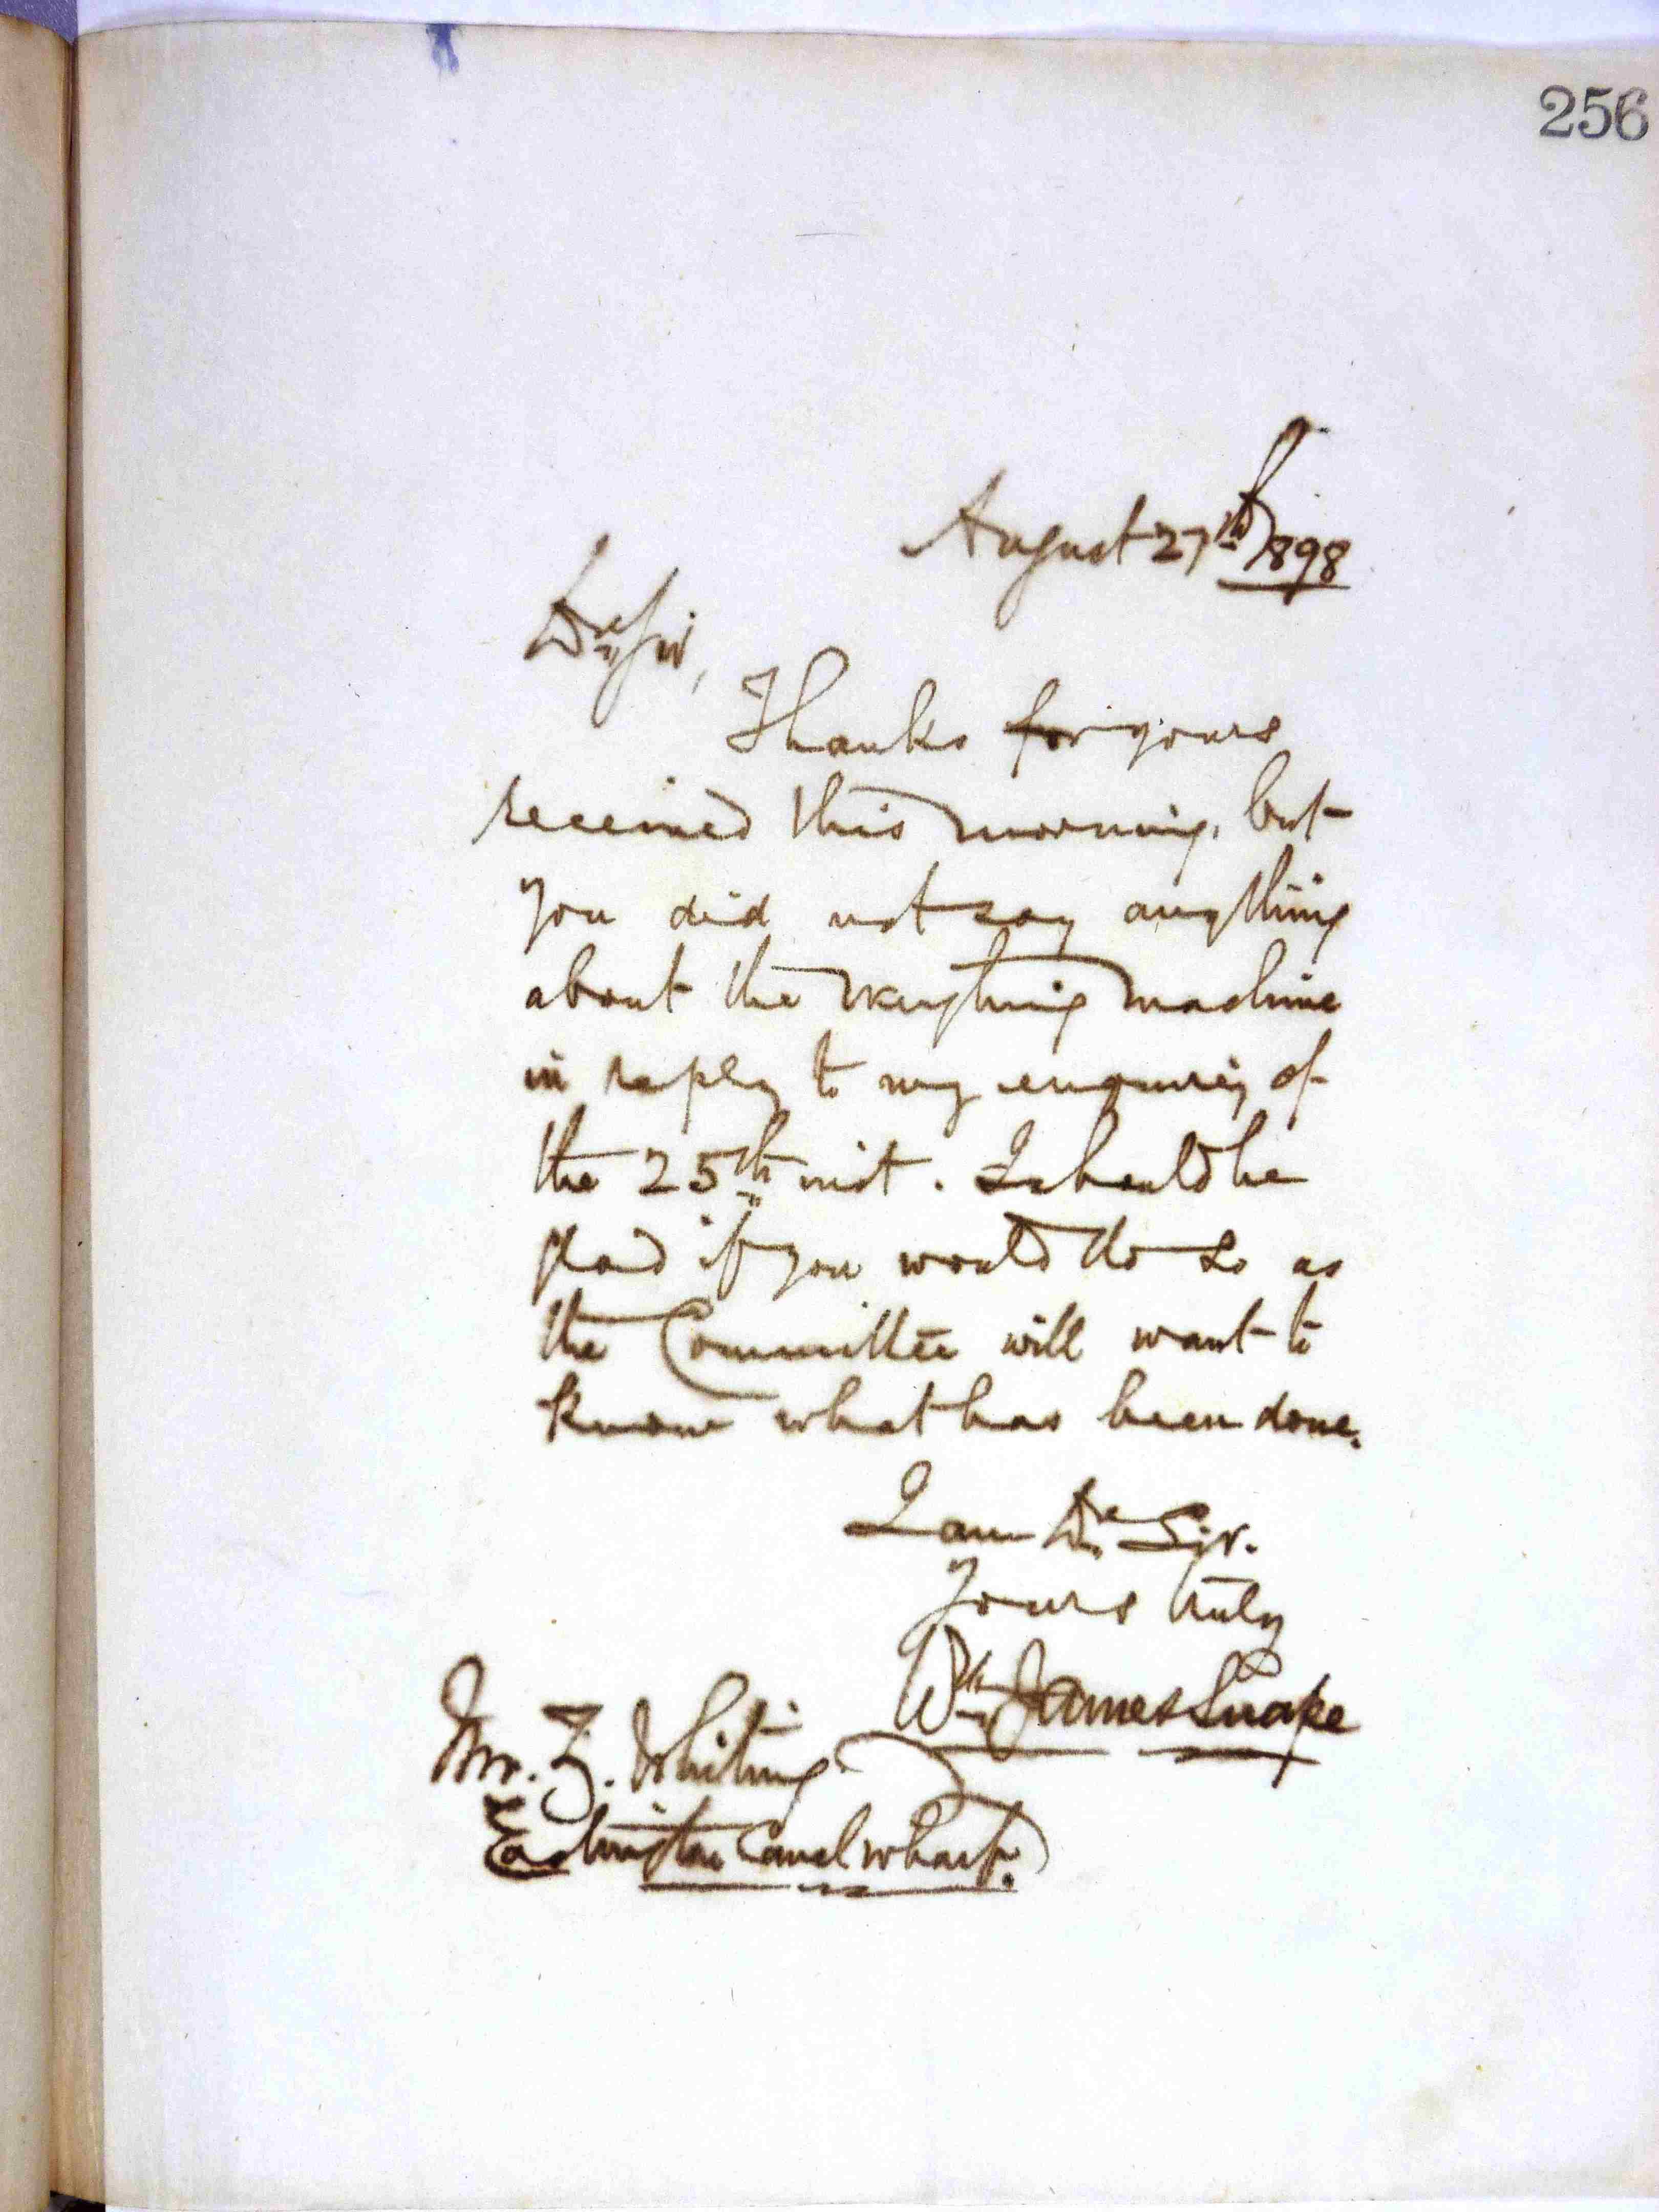 256
August 27th 1898
Dr Sir,
Thanks for yours
received this morning, but
you did not say anything
about the Weighing Machine
in reply to my enquiry of
the 25th inst. I should be
glad if you would do so as
the Committee will want to
know what has been done.
I am Dr Sir.
Yours truly
Wm James Snape
Mr. Z. Whiting
Eastington Canal Wharf.